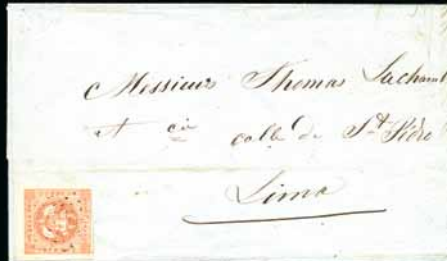 Messieurs Thomas Lachamb
et cie calle de St Pedro
Lima